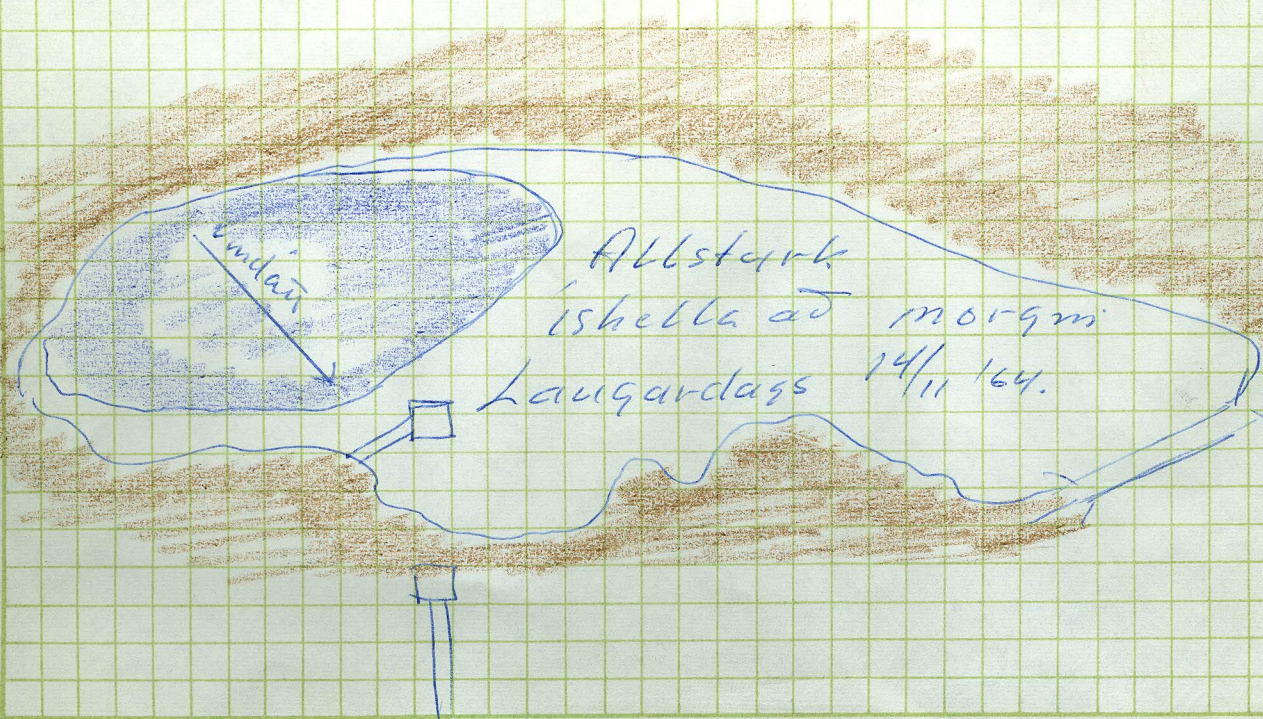 Vindátt
Allstyrk
íshella að morgni
Laugardags 14/11 '64.